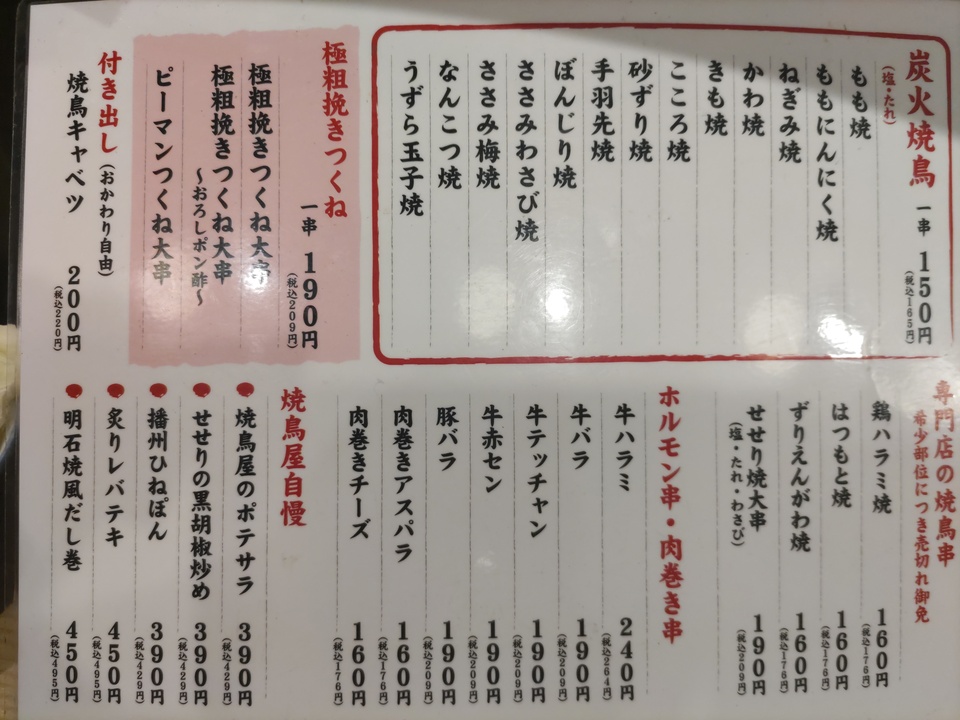 炭火焼鳥 一串 150円
(税込165円)
(塩・たれ)
もも焼
ももにんにく焼
ねぎみ焼
かわ焼
きも焼
こころ焼
砂ずり焼
手羽先焼
ぼんじり焼
ささみわさび焼
ささみ梅焼
なんこつ焼
うずら玉子焼
極粗挽きつくね
一串 190円
(税込209円)
極粗挽きつくね大串
極粗挽きつくね大串
~おろしポン酢~
ピーマンつくね大串
付き出し(おかわり自由)
焼鳥キャベツ 200円
(税込220円)
専門店の焼鳥串
希少部位につき売切れ御免
鶏ハラミ焼 160円
(税込176円)
はつもと焼 160円
(税込176円)
ずりえんがわ焼 160円
(税込176円)
せせり焼大串 190円
(塩・たれ・わさび) (税込209円)
ホルモン串・肉巻き串
牛ハラミ 240円
(税込264円)
牛バラ 190円
(税込209円)
牛テッチャン 190円
(税込209円)
牛赤セン 190円
(税込209円)
豚バラ 190円
(税込209円)
肉巻きアスパラ 160円
(税込176円)
肉巻きチーズ 160円
(税込176円)
焼鳥屋自慢
焼鳥屋のポテサラ 390円
(税込429円)
せせりの黒胡椒炒め 390円
(税込429円)
播州ひねぽん 390円
(税込429円)
炙りレバテキ 450円
(税込495円)
明石焼風だし巻 450円
(税込495円)